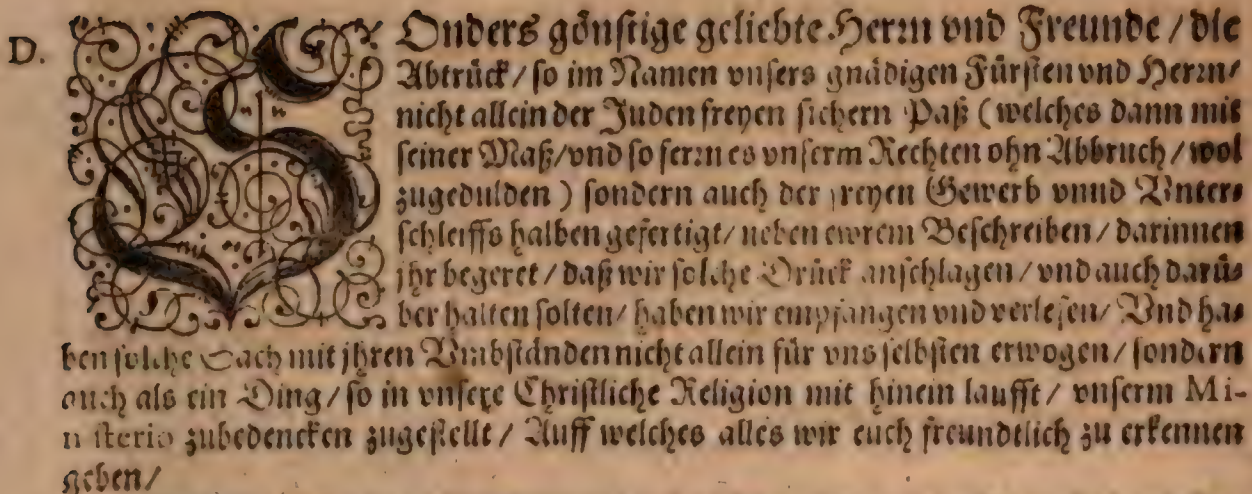 D. SOnders gönstige geliebte Herrn vnd Freunde / die
Abtrück / so im Namen vnsers gnädigen Fürsten vnd Herrn /
nicht allein der Juden freyen sichern Paß (welches dann mit
seiner Maß / vnd so ferrn es vnserm Rechten ohn Abbruch / wol
zugedulden) sondern auch der freyen Gewerb vnnd Vnter-
schleiffs halben gefertigt / neben ewrem Beschreiben / darinnen
jhr begeret / daß wir solche Drück anschlagen / vnd auch darü-
ber halten solten / haben wir empfangen vnd verlesen / Vnd ha-
ben solche Sach mit jhren Vmbständen nicht allein für vns selbsten erwogen / sondern
auch als ein Ding / so in vnsere Christliche Religion mit hinein laufft / vnserm Mi-
nisterio zubedencken zugestellt / Auff welches alles wir euch freundtlich zu erkennen
geben /